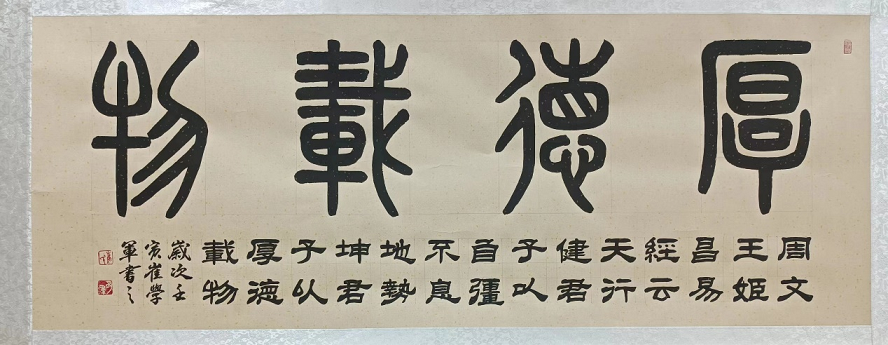 厚德載物
周文
王姬
昌易
經云
天行
健君
子以
自彊
不息
地勢
坤君
子以
厚德
載物
歲次壬
寅崔學
軍書之